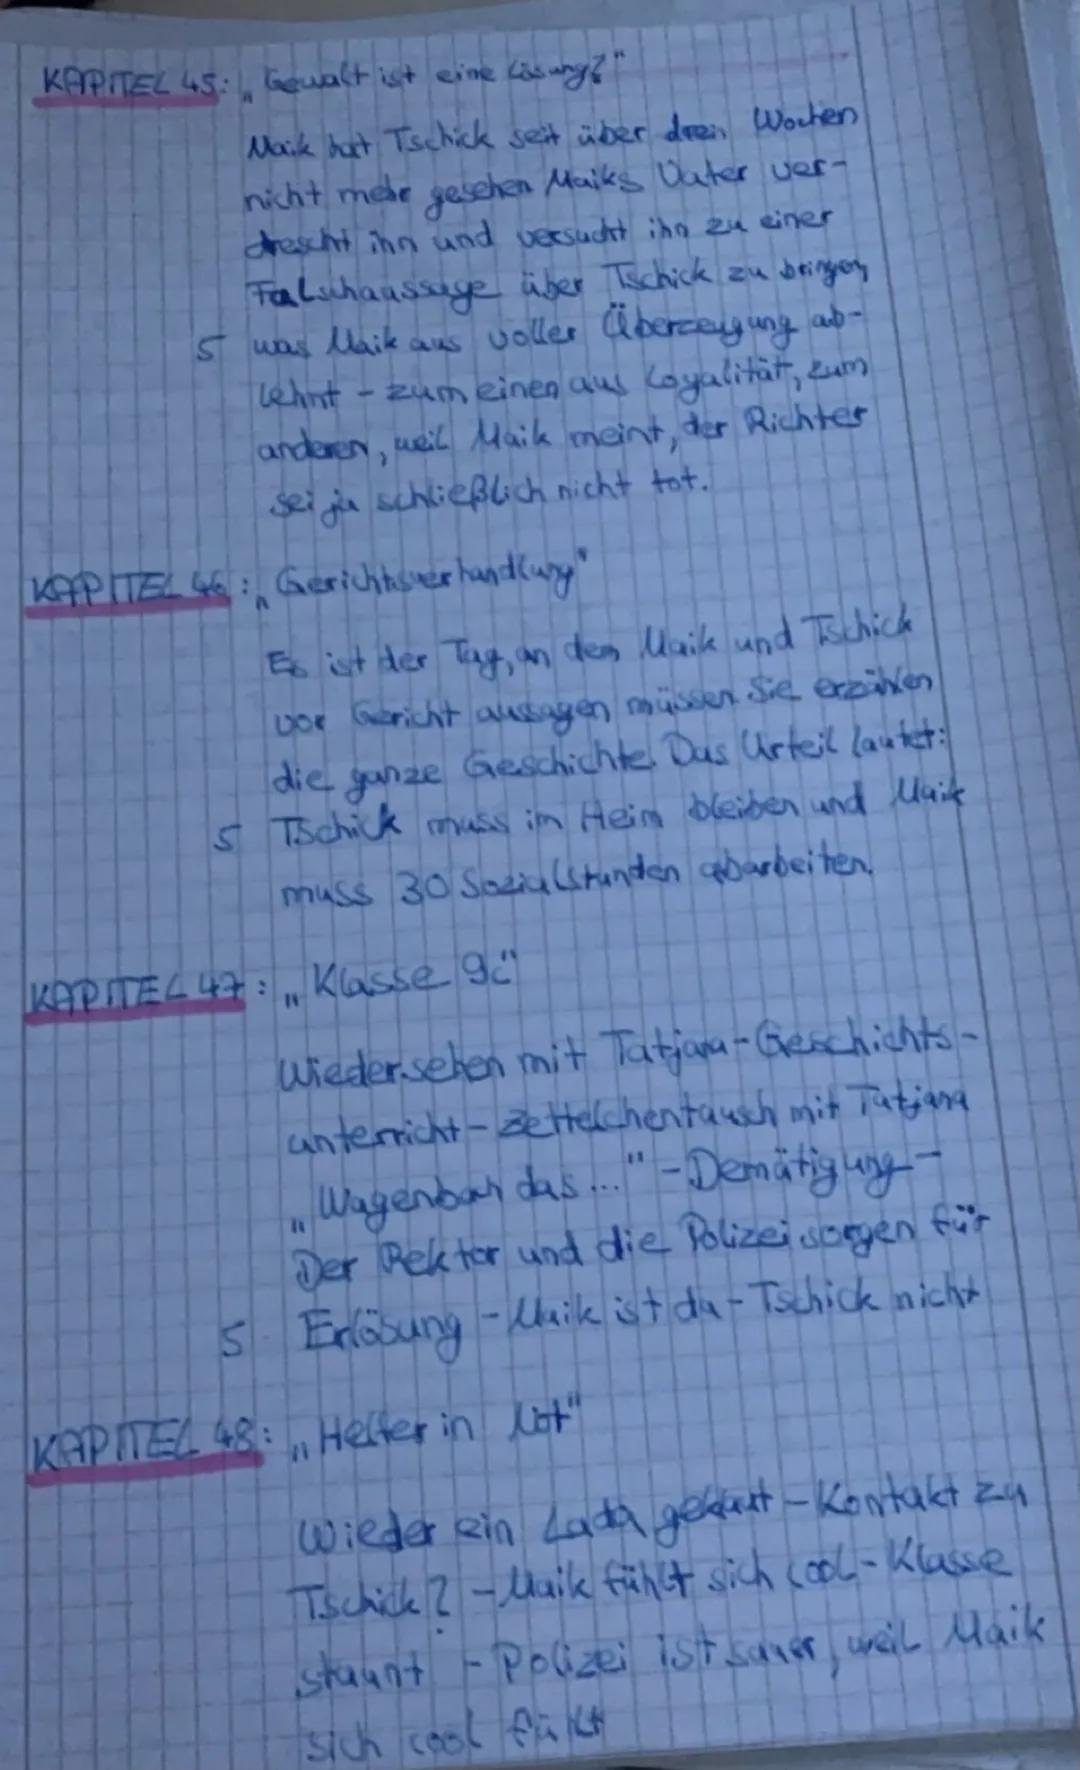 KAPITEL 45: „Gewalt ist eine Lösung?"
Maik hat Tschick seit über drei Wochen
nicht mehr gesehen Maiks Vater ver-
drescht ihn und versucht ihn zu einer
Falschaussage über Tschick zu bringen,
5 was Maik aus voller Überzeugung ab-
lehnt - zum einen aus Loyalität, zum
anderen, weil Maik meint, der Richter
sei ja schließlich nicht tot.
KAPITEL 46: „Gerichtsverhandlung"
Es ist der Tag, an dem Maik und Tschick
vor Gericht aussagen müssen. Sie erzählen
die ganze Geschichte. Das Urteil lautet:
5 Tschick muss im Heim bleiben und Maik
muss 30 Sozialstunden abarbeiten.
KAPITEL 47: „Klasse 9c"
Wiedersehen mit Tatjana - Geschichts-
unterricht - Zettelchentausch mit Tatjana
„Wagenbach das..." - Demätigung -
Der Rektor und die Polizei sorgen für
5 Erlösung - Maik ist da - Tschick nicht
KAPITEL 48: „Helfer in Not"
Wieder ein Lada geklaut - Kontakt zu
Tschick? - Maik fühlt sich cool - Klasse
staunt - Polizei ist sauer, weil Maik
sich cool fühlt